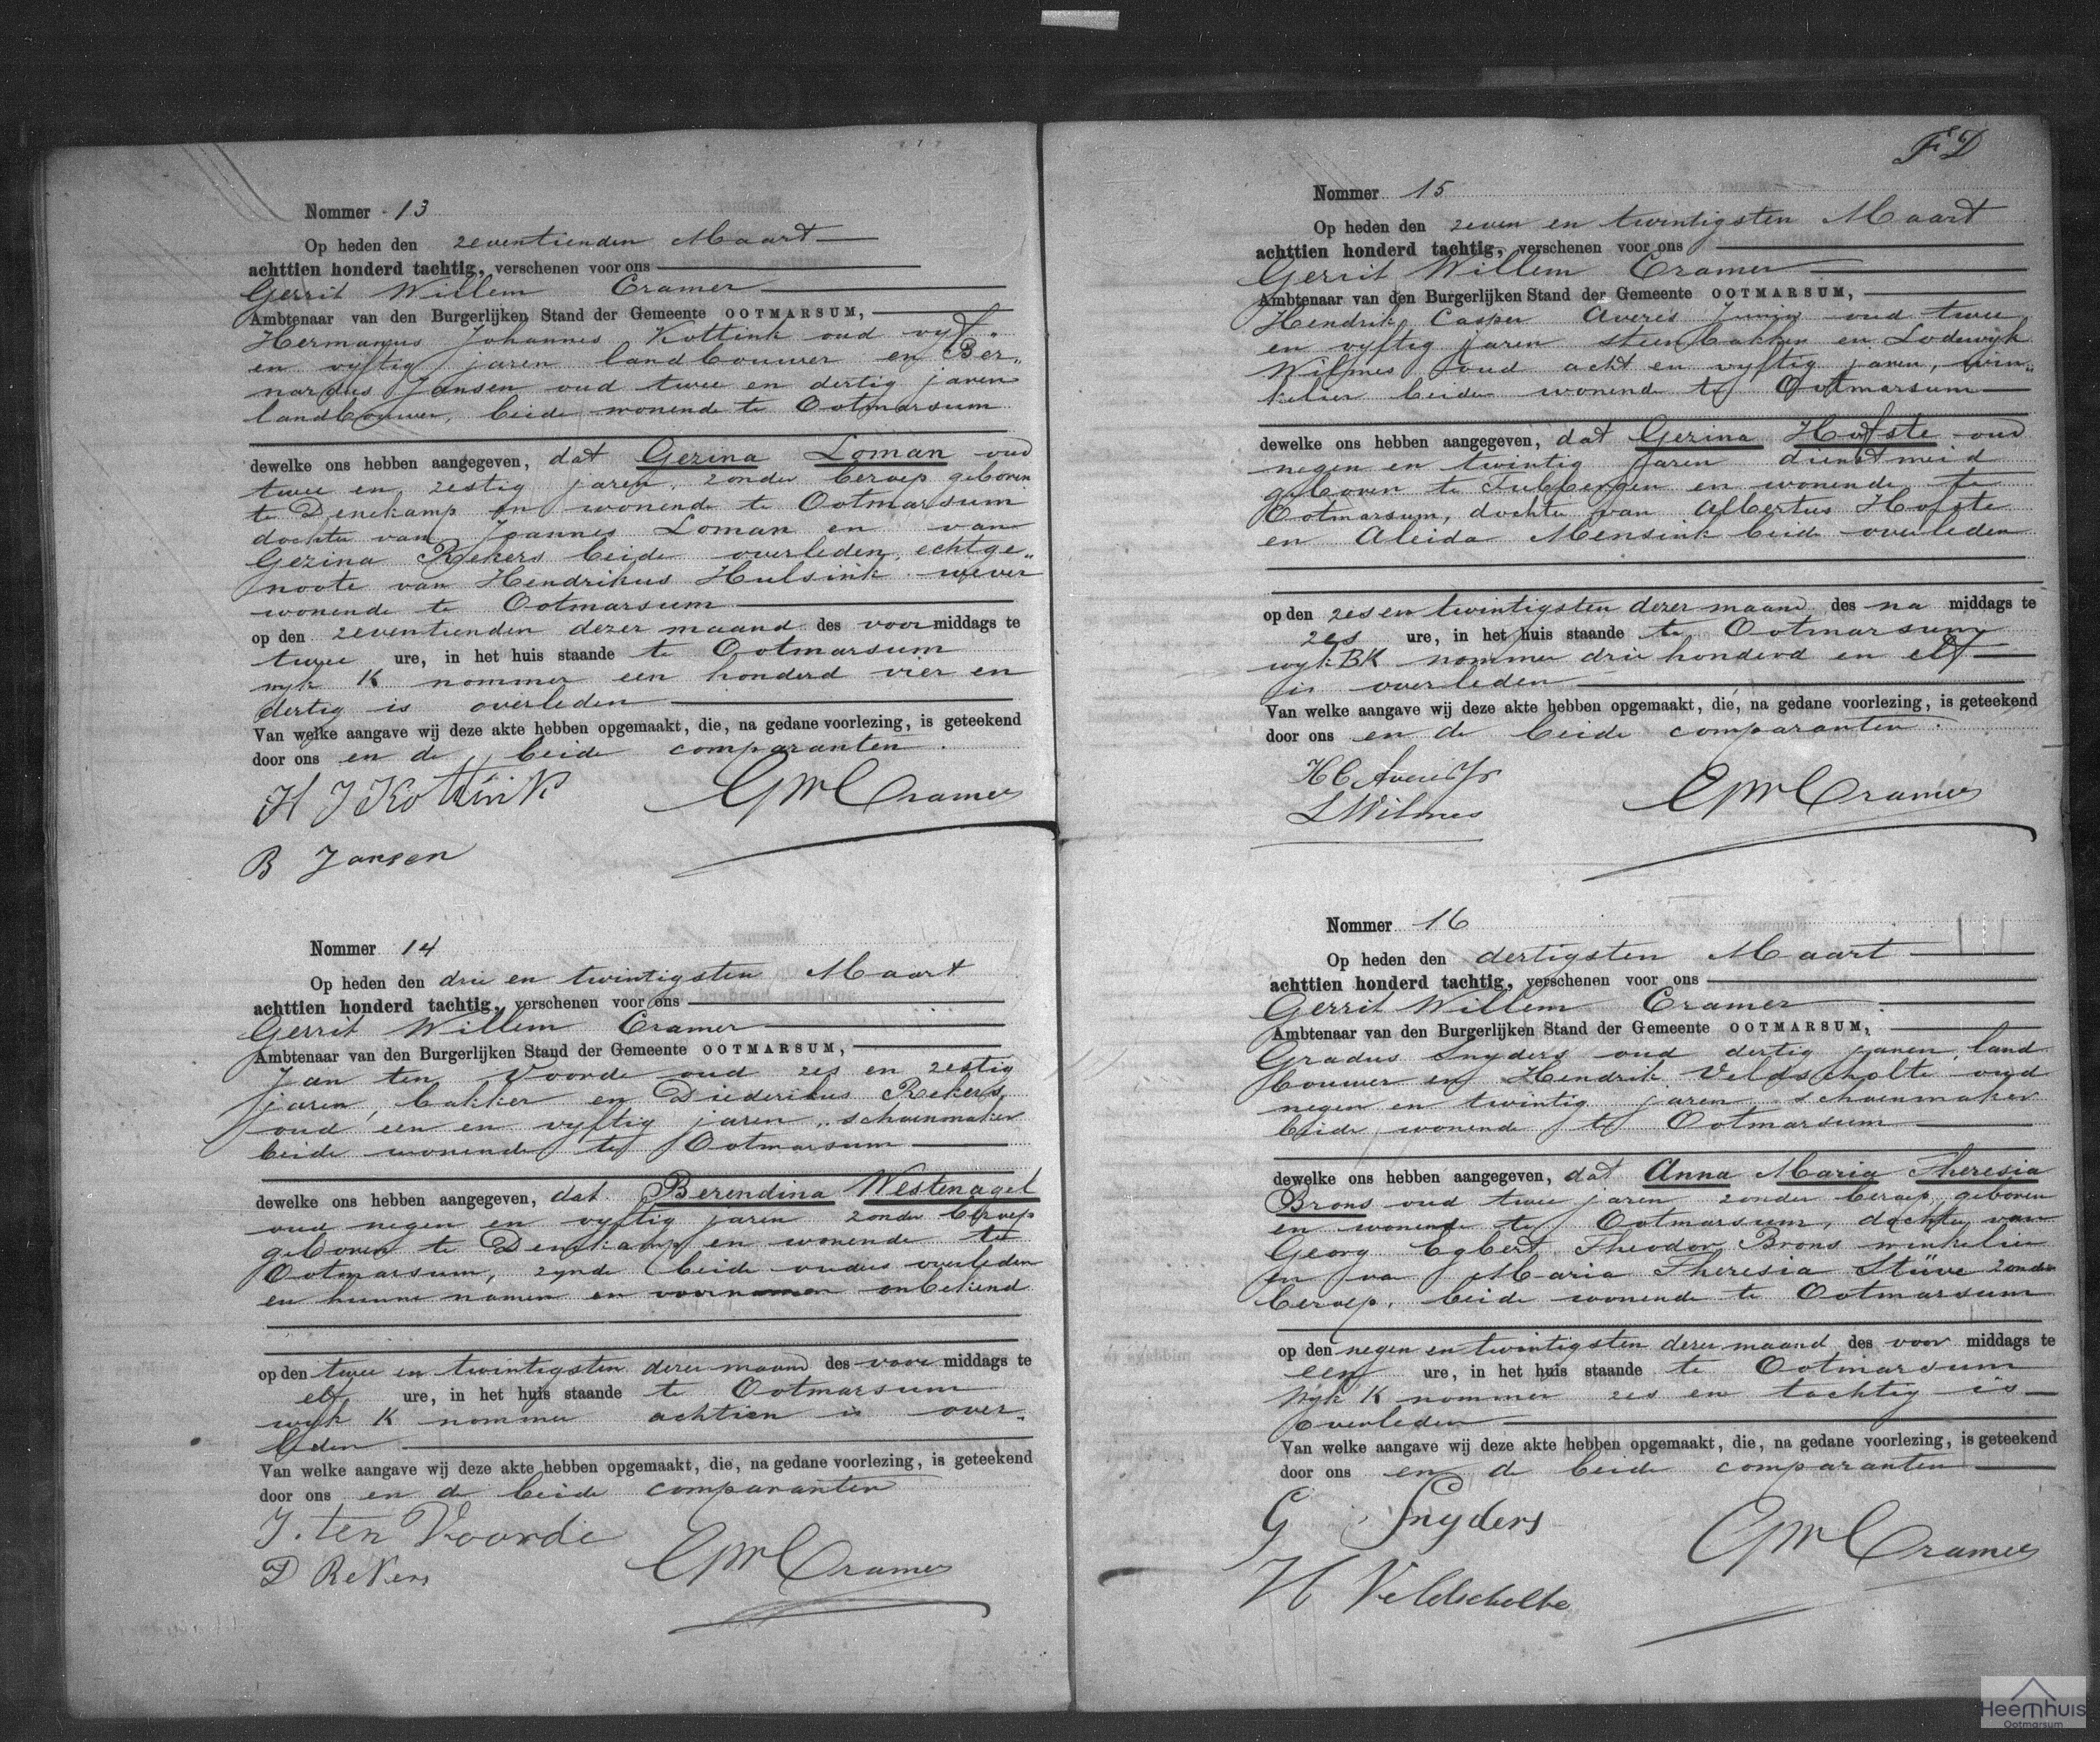 Nommer 13
Op heden den zeventienden Maart
achttien honderd tachtig, verschenen voor ons
Gerrit Willem Cramer
Ambtenaar van den Burgerlijken Stand der Gemeente OOTMARSUM,
Hermanus Johannes Kottink oud vyf
en vyftig jaren landbouwer en Ber„
nardus Jansen oud twee en dertig jaren
landbouwer, beide wonende te Ootmarsum
dewelke ons hebben aangegeven, dat Gezina Loman oud
twee en zestig jaren, zonder beroep geboren
te Denekamp en wonende te Ootmarsum
dochter van Joannes Loman en van
Gezina Rekers beide overleden, echtge„
noote van Hendrikus Hulsink wever
wonende te Ootmarsum
op den zeventienden dezer maand des voor middags te
twee ure, in het huis staande te Ootmarsum
wyk K nommer een honderd vier en
dertig is overleden
Van welke aangave wij deze akte hebben opgemaakt, die, na gedane voorlezing, is geteekend
door ons en de beide comparanten.
H J Kottink GW Cramer
B Jansen
Nommer 14
Op heden den drie en twintigsten Maart
achttien honderd tachtig, verschenen voor ons
Gerrit Willem Cramer
Ambtenaar van den Burgerlijken Stand der Gemeente OOTMARSUM,
Jan ten Voorde oud zes en zestig
jaren, bakker en Diederikus Rekers,
oud een en vyftig jaren, schoenmaker
beide wonende te Ootmarsum
dewelke ons hebben aangegeven, dat Berendina Westenagel
oud negen en vyftig jaren zonder beroep
geboren te Denekamp en wonende te
Ootmarsum, zynde beide ouders overleden
en hunne namen en voornamen onbekend
op den twee en twintigsten dezer maand des voor middags te
elf ure, in het huis staande te Ootmarsum
wyk K nommer achtien is over„
leden
Van welke aangave wij deze akte hebben opgemaakt, die, na gedane voorlezing, is geteekend
door ons en de beide comparanten
J. ten Voorde
D Rekers GW Cramer
FD
Nommer 15
Op heden den zeven en twintigsten Maart
achttien honderd tachtig, verschenen voor ons
Gerrit Willem Cramer
Ambtenaar van den Burgerlijken Stand der Gemeente OOTMARSUM,
Hendrik Casper Averes Junior oud twee
en vyftig jaren steenbakker en Lodewyk
Wilmes oud acht en vyftig jaren, win„
kelier beide wonende te Ootmarsum
dewelke ons hebben aangegeven, dat Gezina Hofste oud
negen en twintig jaren dienstmeid
geboren te Tubbergen en wonende te
Ootmarsum, dochter van Albertus Hofste
en Aleida Mensink beide overleden
op den zes en twintigsten dezer maand des na middags te
zes ure, in het huis staande te Ootmarsum
wyk BK nommer drie honderd en elf
is overleden
Van welke aangave wij deze akte hebben opgemaakt, die, na gedane voorlezing, is geteekend
door ons en de beide comparanten.
HC Averes Jr
L Wilmes GW Cramer
Nommer 16
Op heden den dertigsten Maart
achttien honderd tachtig, verschenen voor ons
Gerrit Willem Cramer
Ambtenaar van den Burgerlijken Stand der Gemeente OOTMARSUM,
Gradus Snyders oud dertig jaren, land
bouwer en Hendrik Veldscholte oud
negen en twintig jaren schoenmaker
beide wonende te Ootmarsum
dewelke ons hebben aangegeven, dat Anna Maria Theresia
Brons oud twee jaren zonder beroep, geboren
en wonende te Ootmarsum, dochter van
Georg Egbert Theodor Brons winkelier
en va Maria Theresia Stüve zonder
beroep, beide wonende te Ootmarsum
op den negen en twintigsten dezer maand des voor middags te
een ure, in het huis staande te Ootmarsum
Wyk K nommer zes en tachtig is
overleden
Van welke aangave wij deze akte hebben opgemaakt, die, na gedane voorlezing, is geteekend
door ons en de beide comparanten
G Snyders
H Veldscholte GW Cramer
Heemhuis
Ootmarsum